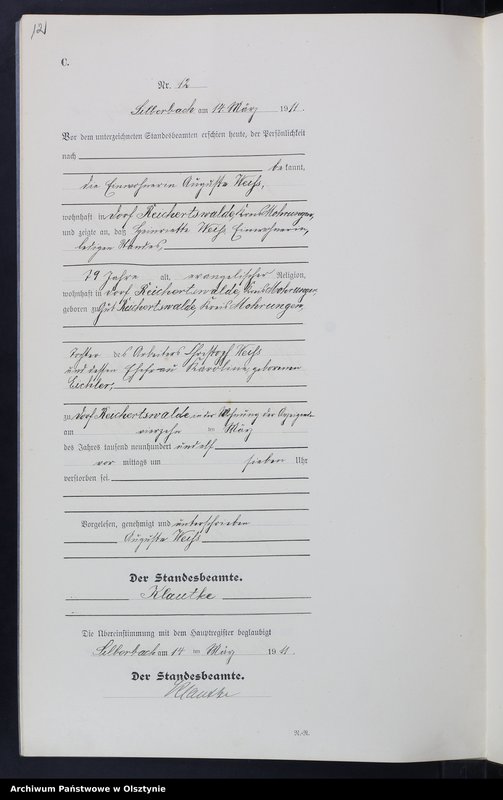 121
C.
Nr. 12
Silberbach am 14 März 1911.
Vor dem unterzeichneten Standesbeamten erschien heute, der Persönlichkeit
nach
bekannt,
die Einwohnerin Auguste Weiß,
wohnhaft in Dorf Reichertswalde, Kreis Mohrungen,
und zeigte an, daß Henriette Weiß Einwohnerin,
ledigen Standes,
79 Jahre alt, evangelischer Religion,
wohnhaft in Dorf Reichertswalde, Kreis Mohrungen,
geboren zu Gut Reichertswalde, Kreis Mohrungen,
Tochter des Arbeiters Christoph Weiß
und dessen Ehefrau Karoline, geborenen
Eichler,
zu Dorf Reichertswalde in der Wohnung der Anzeigende
am vierzehn ten März
des Jahres tausend neunhundert und elf
vor mittags um sieben Uhr
verstorben sei.
Vorgelesen, genehmigt und unterschrieben
Auguste Weiß
Der Standesbeamte.
Klautke
Die Übereinstimmung mit dem Hauptregister beglaubigt
Silberbach am 14 ten März 1911.
Der Standesbeamte.
Klautke
N.-R.
Archiwum Państwowe w Olsztynie